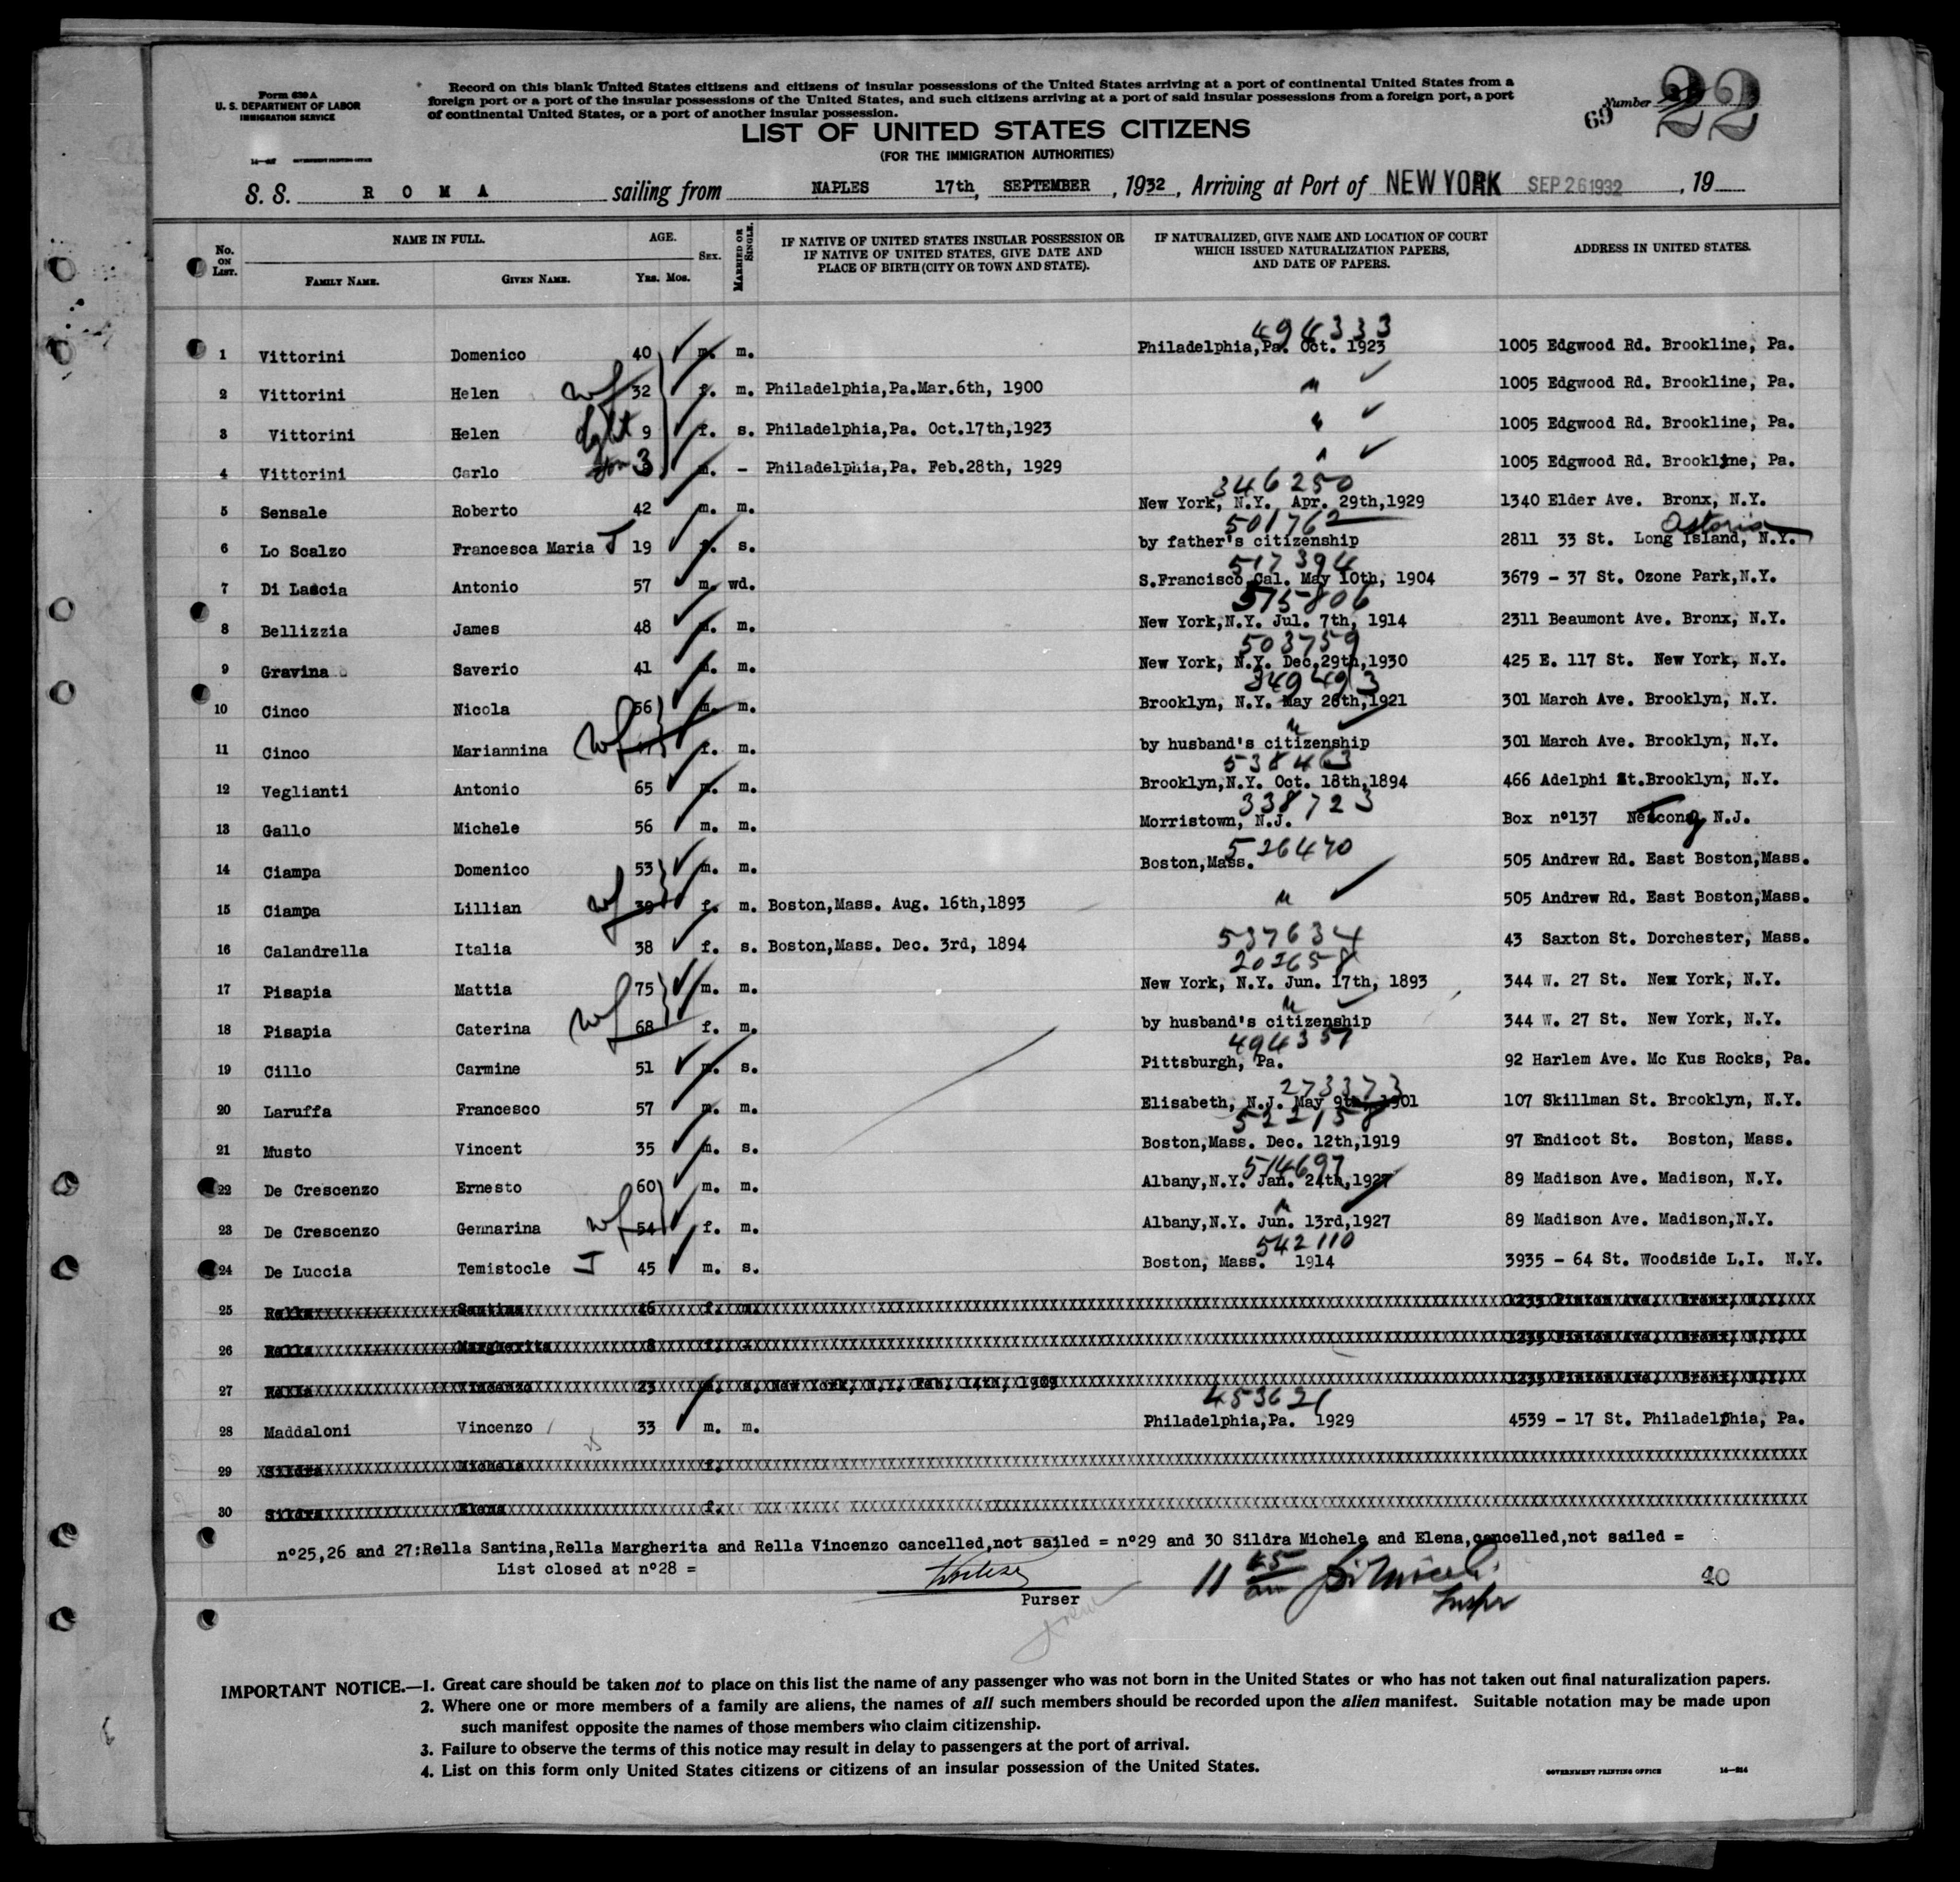 Form 630 A
U. S. DEPARTMENT OF LABOR
IMMIGRATION SERVICE
Record on this blank United States citizens and citizens of insular possessions of the United States arriving at a port of continental United States from a
foreign port or a port of the insular possessions of the United States, and such citizens arriving at a port of said insular possessions from a foreign port, a port
of continental United States, or a port of another insular possession.
69 Number 22
LIST OF UNITED STATES CITIZENS
(FOR THE IMMIGRATION AUTHORITIES)
GOVERNMENT PRINTING OFFICE
S. S. R O M A sailing from NAPLES 17th, SEPTEMBER, 1932, Arriving at Port of NEW YORK SEP 26 1932, 19
No. ON LIST. NAME IN FULL. FAMILY NAME. GIVEN NAME. AGE. Yrs. Mos. SEX. MARRIED OR SINGLE. IF NATIVE OF UNITED STATES INSULAR POSSESSION OR IF NATIVE OF UNITED STATES, GIVE DATE AND PLACE OF BIRTH (CITY OR TOWN AND STATE). IF NATURALIZED, GIVE NAME AND LOCATION OF COURT WHICH ISSUED NATURALIZATION PAPERS, AND DATE OF PAPERS. ADDRESS IN UNITED STATES.
494333
1 Vittorini Domenico 40 m. m. Philadelphia,Pa. Oct. 1923 1005 Edgwood Rd. Brookline, Pa.
2 Vittorini Helen wf 32 f. m. Philadelphia,Pa.Mar.6th, 1900 " 1005 Edgwood Rd. Brookline, Pa.
3 Vittorini Helen dght 9 f. s. Philadelphia,Pa. Oct.17th,1923 " 1005 Edgwood Rd. Brookline, Pa.
4 Vittorini Carlo son 3 m. - Philadelphia,Pa. Feb.28th, 1929 " 1005 Edgwood Rd. Brookline, Pa.
346250
5 Sensale Roberto 42 m. m. New York, N.Y. Apr. 29th,1929 1340 Elder Ave. Bronx, N.Y.
501762 Astoria
6 Lo Scalzo Francesca Maria J 19 f. s. by father's citizenship 2811 33 St. Long Island, N.Y.
517394
7 Di Lascia Antonio 57 m. wd. S.Francisco Cal. May 10th, 1904 3679 - 37 St. Ozone Park,N.Y.
575806
8 Bellizzia James 48 m. m. New York,N.Y. Jul. 7th, 1914 2311 Beaumont Ave. Bronx, N.Y.
503759
9 Gravina Saverio 41 m. m. New York, N.Y. Dec,29th,1930 425 E. 117 St. New York, N.Y.
349493
10 Cinco Nicola 56 m. m. Brooklyn, N.Y. May 26th,1921 301 March Ave. Brooklyn, N.Y.
11 Cinco Mariannina wf f. m. by husband's citizenship 301 March Ave. Brooklyn, N.Y.
538463
12 Veglianti Antonio 65 m. m. Brooklyn,N.Y. Oct. 18th,1894 466 Adelphi St.Brooklyn, N.Y.
338723
13 Gallo Michele 56 m. m. Morristown, N.J. Box nº137 Netcong N.J.
526470
14 Ciampa Domenico 53 m. m. Boston,Mass. 505 Andrew Rd. East Boston,Mass.
15 Ciampa Lillian wf 39 f. m. Boston,Mass. Aug. 16th,1893 " 505 Andrew Rd. East Boston,Mass.
537634
16 Calandrella Italia 38 f. s. Boston,Mass. Dec. 3rd, 1894 43 Saxton St. Dorchester, Mass.
202658
17 Pisapia Mattia 75 m. m. New York, N.Y. Jun. 17th, 1893 344 W. 27 St. New York, N.Y.
18 Pisapia Caterina wf 68 f. m. by husband's citizenship 344 W. 27 St. New York, N.Y.
494357
19 Cillo Carmine 51 m. s. Pittsburgh, Pa. 92 Harlem Ave. Mc Kus Rocks, Pa.
273373
20 Laruffa Francesco 57 m. m. Elisabeth, N.J. May 9th, 1901 107 Skillman St. Brooklyn, N.Y.
522158
21 Musto Vincent 35 m. s. Boston,Mass. Dec. 12th,1919 97 Endicot St. Boston, Mass.
514697
22 De Crescenzo Ernesto 60 m. m. Albany,N.Y. Jan. 24th,1927 89 Madison Ave. Madison, N.Y.
23 De Crescenzo Gennarina wf 54 f. m. Albany,N.Y. Jun. 13rd,1927 89 Madison Ave. Madison,N.Y.
542110
24 De Luccia Temistocle J 45 m. s. Boston, Mass. 1914 3935 - 64 St. Woodside L.I. N.Y.
25 Rella Santina 46 f. m. Bronx, N.Y.
26 Rella Margherita 8 f. - Bronx, N.Y.
27 Rella Vincenzo 23 m. s. New York, N.Y. Feb. 14th, 1909 Bronx, N.Y.
453621
28 Maddaloni Vincenzo 33 m. m. Philadelphia,Pa. 1929 4539 - 17 St. Philadelphia, Pa.
29 Sildra Michele f.
30 Sildra Elena f.
nº25,26 and 27:Rella Santina,Rella Margherita and Rella Vincenzo cancelled,not sailed = nº29 and 30 Sildra Michele and Elena,cancelled,not sailed =
List closed at nº28 =
Purser
11 45 am
Inspr
20
IMPORTANT NOTICE.—1. Great care should be taken not to place on this list the name of any passenger who was not born in the United States or who has not taken out final naturalization papers.
2. Where one or more members of a family are aliens, the names of all such members should be recorded upon the alien manifest. Suitable notation may be made upon
such manifest opposite the names of those members who claim citizenship.
3. Failure to observe the terms of this notice may result in delay to passengers at the port of arrival.
4. List on this form only United States citizens or citizens of an insular possession of the United States.
GOVERNMENT PRINTING OFFICE